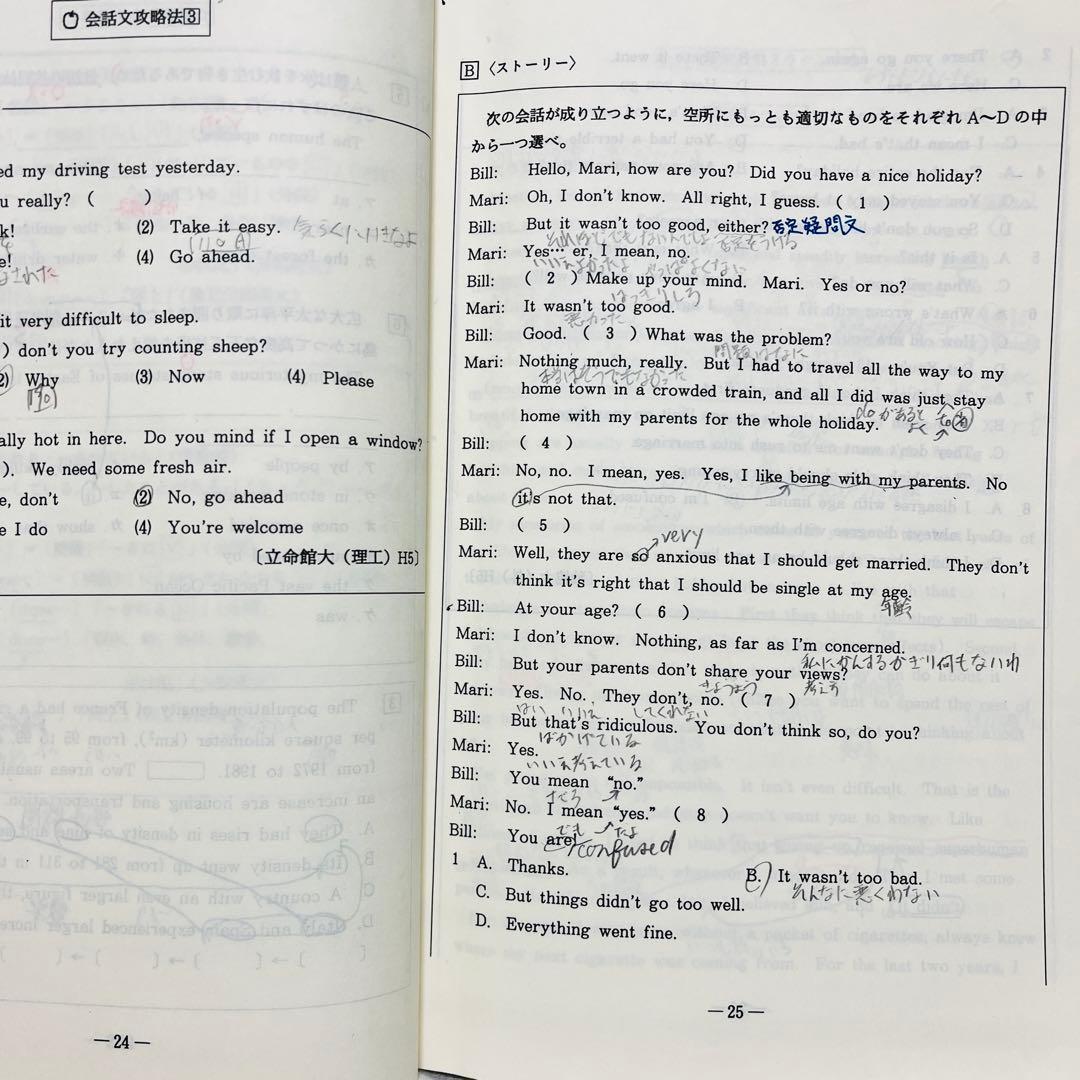 会話文攻略法③
ed my driving test yesterday.
u really? (    )
k!
(2) Take it easy. 気らくにいきなよ
e!
(4) Go ahead.
された
it very difficult to sleep.
) don't you try counting sheep?
2) Why
(3) Now
(4) Please
ally hot in here. Do you mind if I open a window?
). We need some fresh air.
e, don't
(2) No, go ahead
e I do
(4) You're welcome
〔立命館大（理工）H5〕
—24—
B 〈ストーリー〉
次の会話が成り立つように，空所にもっとも適切なものをそれぞれA～Dの中
から一つ選べ。
Bill: Hello, Mari, how are you? Did you have a nice holiday?
Mari: Oh, I don't know. All right, I guess. ( 1 )
Bill: But it wasn't too good, either? 否定疑問文
Mari: Yes… er, I mean, no.
Bill: ( 2 ) Make up your mind. Mari. Yes or no?
はっきりしろ
Mari: It wasn't too good.
悪かった
Bill: Good. ( 3 ) What was the problem?
問題はなに
Mari: Nothing much, really. But I had to travel all the way to my
home town in a crowded train, and all I did was just stay
home with my parents for the whole holiday.
doがあると
Bill: ( 4 )
Mari: No, no. I mean, yes. Yes, I like being with my parents. No
it's not that.
Bill: ( 5 )
very
Mari: Well, they are so anxious that I should get married. They don't
think it's right that I should be single at my age.
年齢
Bill: At your age? ( 6 )
Mari: I don't know. Nothing, as far as I'm concerned.
私にかんするかぎり何もないわ
Bill: But your parents don't share your views?
きょうゆう
考え方
Mari: Yes. No. They don't, no. ( 7 )
はい いいえ してくれない
Bill: But that's ridiculous. You don't think so, do you?
ばかげている
Mari: Yes.
いいえ考えている
Bill: You mean “no.”
Mari: No. I mean “yes.” ( 8 )
Bill: You are!
confused
1 A. Thanks.
B. It wasn't too bad.
そんなに悪くわない
C. But things didn't go too well.
D. Everything went fine.
—25—